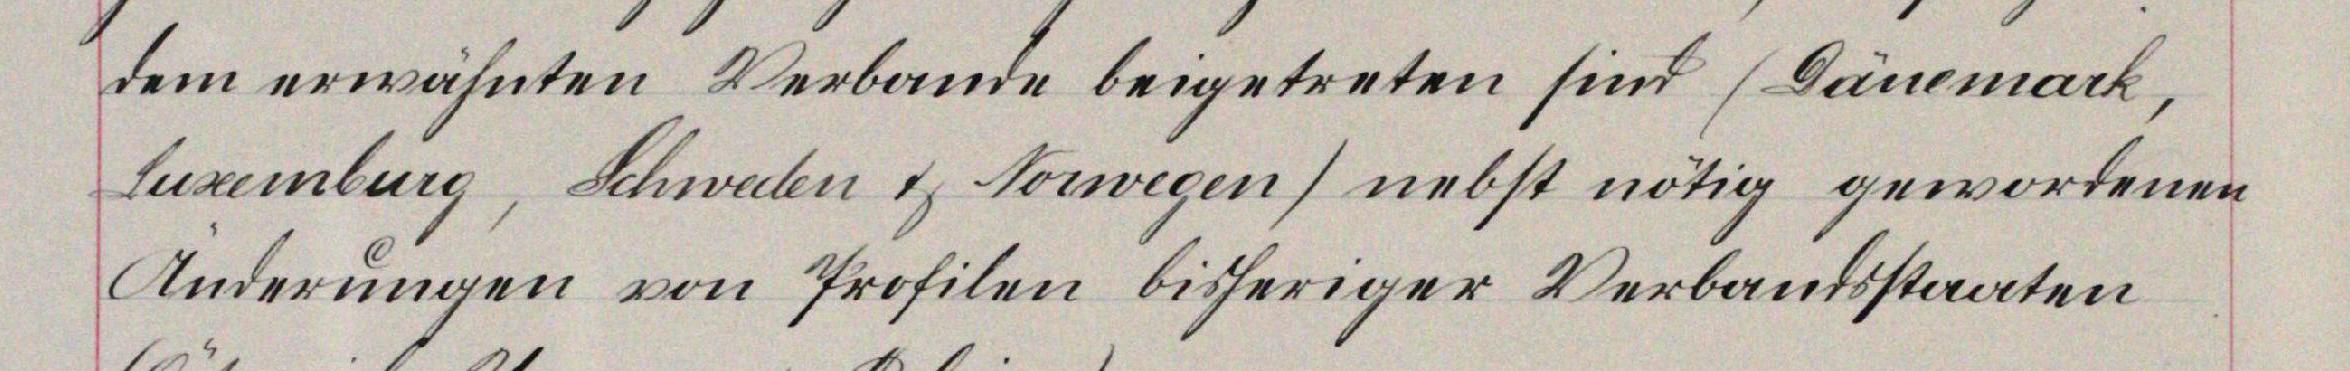 dem erwähnten Verbande beigetreten sind (Dänemark,
Luxemburg, Schweden & Norwegen) nebst nötig gewordenen
Änderungen von Profilen bisheriger Verbandsstaaten